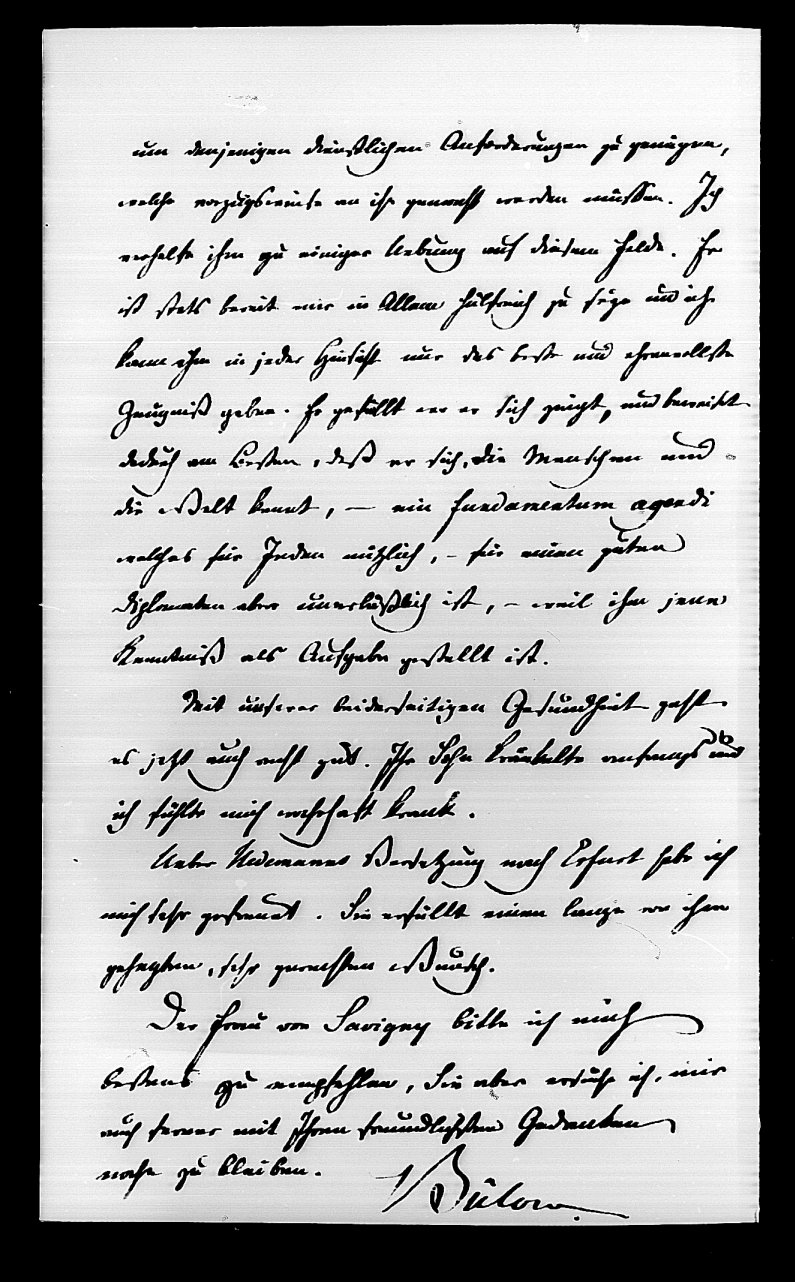 um denjenigen dienstlichen Anforderungen zu genügen,
welche vorzugsweise an ihn gemacht werden müssen. Ich
verhelfe ihm zu einiger Uebung auf diesem Felde. Er
ist stets bereit mir in Allem hülfreich zu seyn und ich
kann ihm in jeder Hinsicht nur das beste und ehrenvollste
Zeugniß geben. Er gefällt wo er sich zeigt, und beweiset
dadurch am Besten, daß er sich, die Menschen und
die Welt kennt, – ein fundamentum agendi
welches für Jeden nützlich, – für einen guten
Diplomaten aber unerläßlich ist, – weil ihm jene
Kenntniß als Aufgabe gestellt ist.
Mit unserer beiderseitigen Gesundheit geht
es jetzt auch recht gut. Ihr Sohn kränkelte anfangs und
ich fühlte mich wahrhaft krank.
Ueber Versetzung nach Erfurt habe ich
mich sehr gefreut. Sie erfüllt einen lange von ihm
gehegten, sehr gerechten Wunsch.
Der Frau von Savigny bitte ich mich
bestens zu empfehlen, Sie aber ersuche ich, mir
auch ferner mit Ihren freundlichsten Gedanken
nahe zu bleiben.
Bülow.